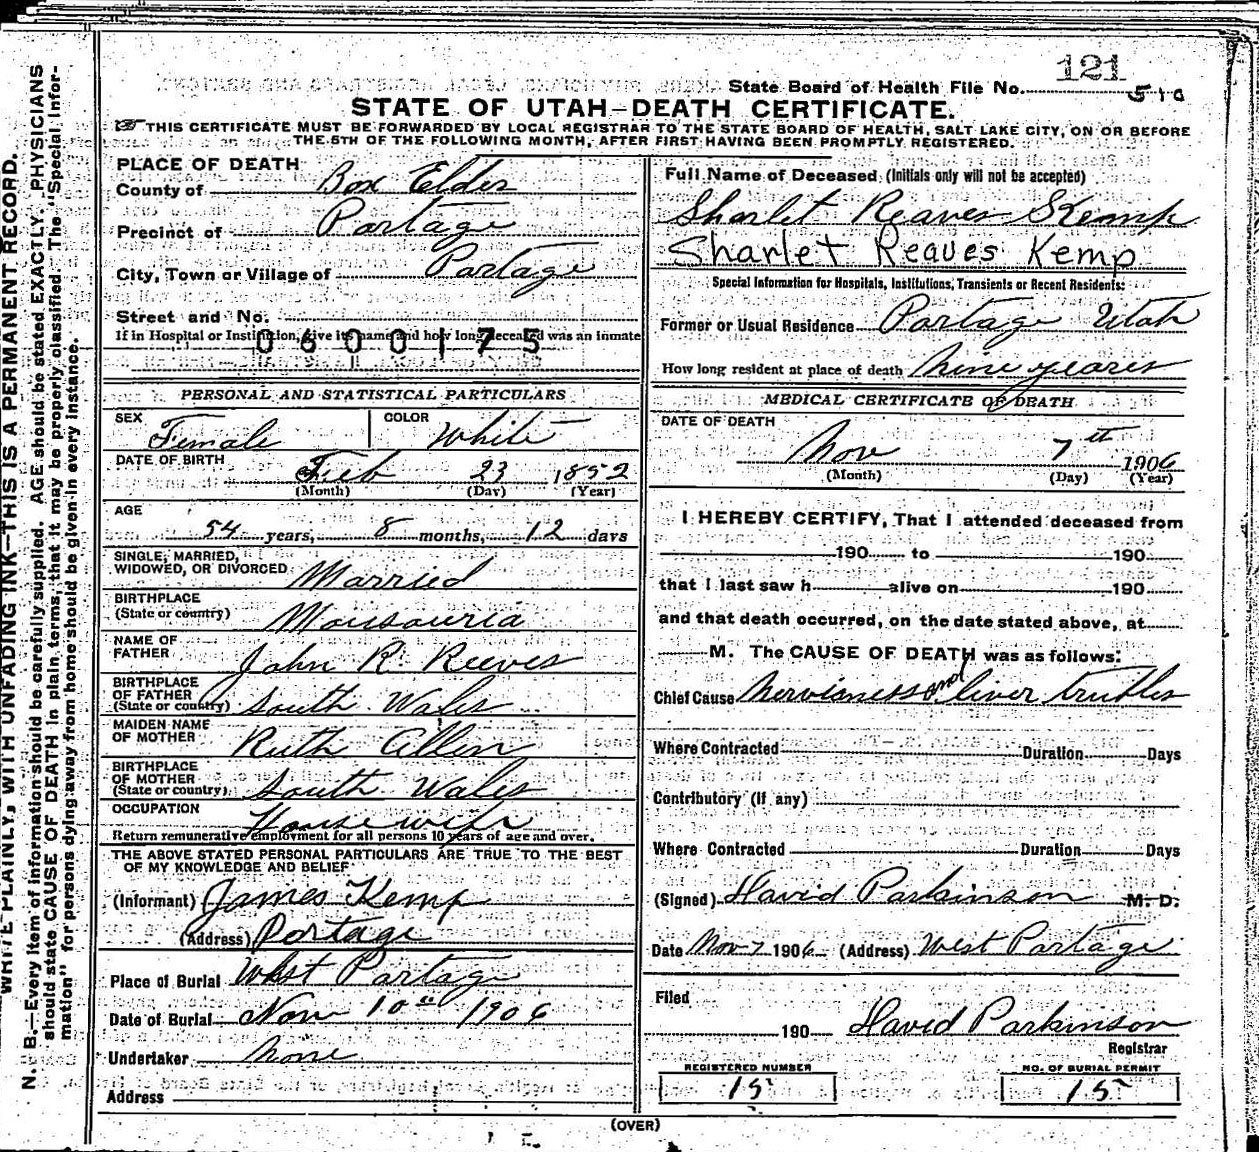 121
State Board of Health File No. 510
STATE OF UTAH—DEATH CERTIFICATE.
THIS CERTIFICATE MUST BE FORWARDED BY LOCAL REGISTRAR TO THE STATE BOARD OF HEALTH, SALT LAKE CITY, ON OR BEFORE
THE 5TH OF THE FOLLOWING MONTH, AFTER FIRST HAVING BEEN PROMPTLY REGISTERED.
WRITE PLAINLY, WITH UNFADING INK—THIS IS A PERMANENT RECORD.
N. B.—Every item of information should be carefully supplied. AGE should be stated EXACTLY. PHYSICIANS
should state CAUSE OF DEATH in plain terms, that it may be properly classified. The "Special Infor-
mation" for persons dying away from home should be given in every instance.
PLACE OF DEATH
County of Box Elder
Precinct of Portage
City, Town or Village of Portage
Street and No.
If in Hospital or Institution, give its name and how long deceased was an inmate
0600175
PERSONAL AND STATISTICAL PARTICULARS
SEX Female COLOR White
DATE OF BIRTH Feb 23 1852
(Month) (Day) (Year)
AGE
54 years, 8 months, 12 days
SINGLE, MARRIED,
WIDOWED, OR DIVORCED Married
BIRTHPLACE
(State or country) Mousouria
NAME OF
FATHER John R. Reeves
BIRTHPLACE
OF FATHER
(State or country) South Wales
MAIDEN NAME
OF MOTHER Ruth Allen
BIRTHPLACE
OF MOTHER
(State or country) South Wales
OCCUPATION Housewife
Return remunerative employment for all persons 10 years of age and over.
THE ABOVE STATED PERSONAL PARTICULARS ARE TRUE TO THE BEST
OF MY KNOWLEDGE AND BELIEF
(Informant) James Kemp
(Address) Portage
Place of Burial West Portage
Date of Burial Nov 10th 1906
Undertaker none
Address
Full Name of Deceased (Initials only will not be accepted)
Sharlet Reaves Kemp
Sharlet Reaves Kemp
Special Information for Hospitals, Institutions, Transients or Recent Residents:
Former or Usual Residence Portage Utah
How long resident at place of death nine yeares
MEDICAL CERTIFICATE OF DEATH
DATE OF DEATH
Nov 7th 1906
(Month) (Day) (Year)
I HEREBY CERTIFY, That I attended deceased from
190 to 190
that I last saw h alive on 190
and that death occurred, on the date stated above, at
M. The CAUSE OF DEATH was as follows:
Chief Cause nervisness and liver trubles
Where Contracted Duration Days
Contributory (If any)
Where Contracted Duration Days
(Signed) David Parkinson M. D.
Date Nov 7 1906 (Address) West Portage
Filed
190 David Parkinson
Registrar
REGISTERED NUMBER
15
NO. OF BURIAL PERMIT
15
(OVER)